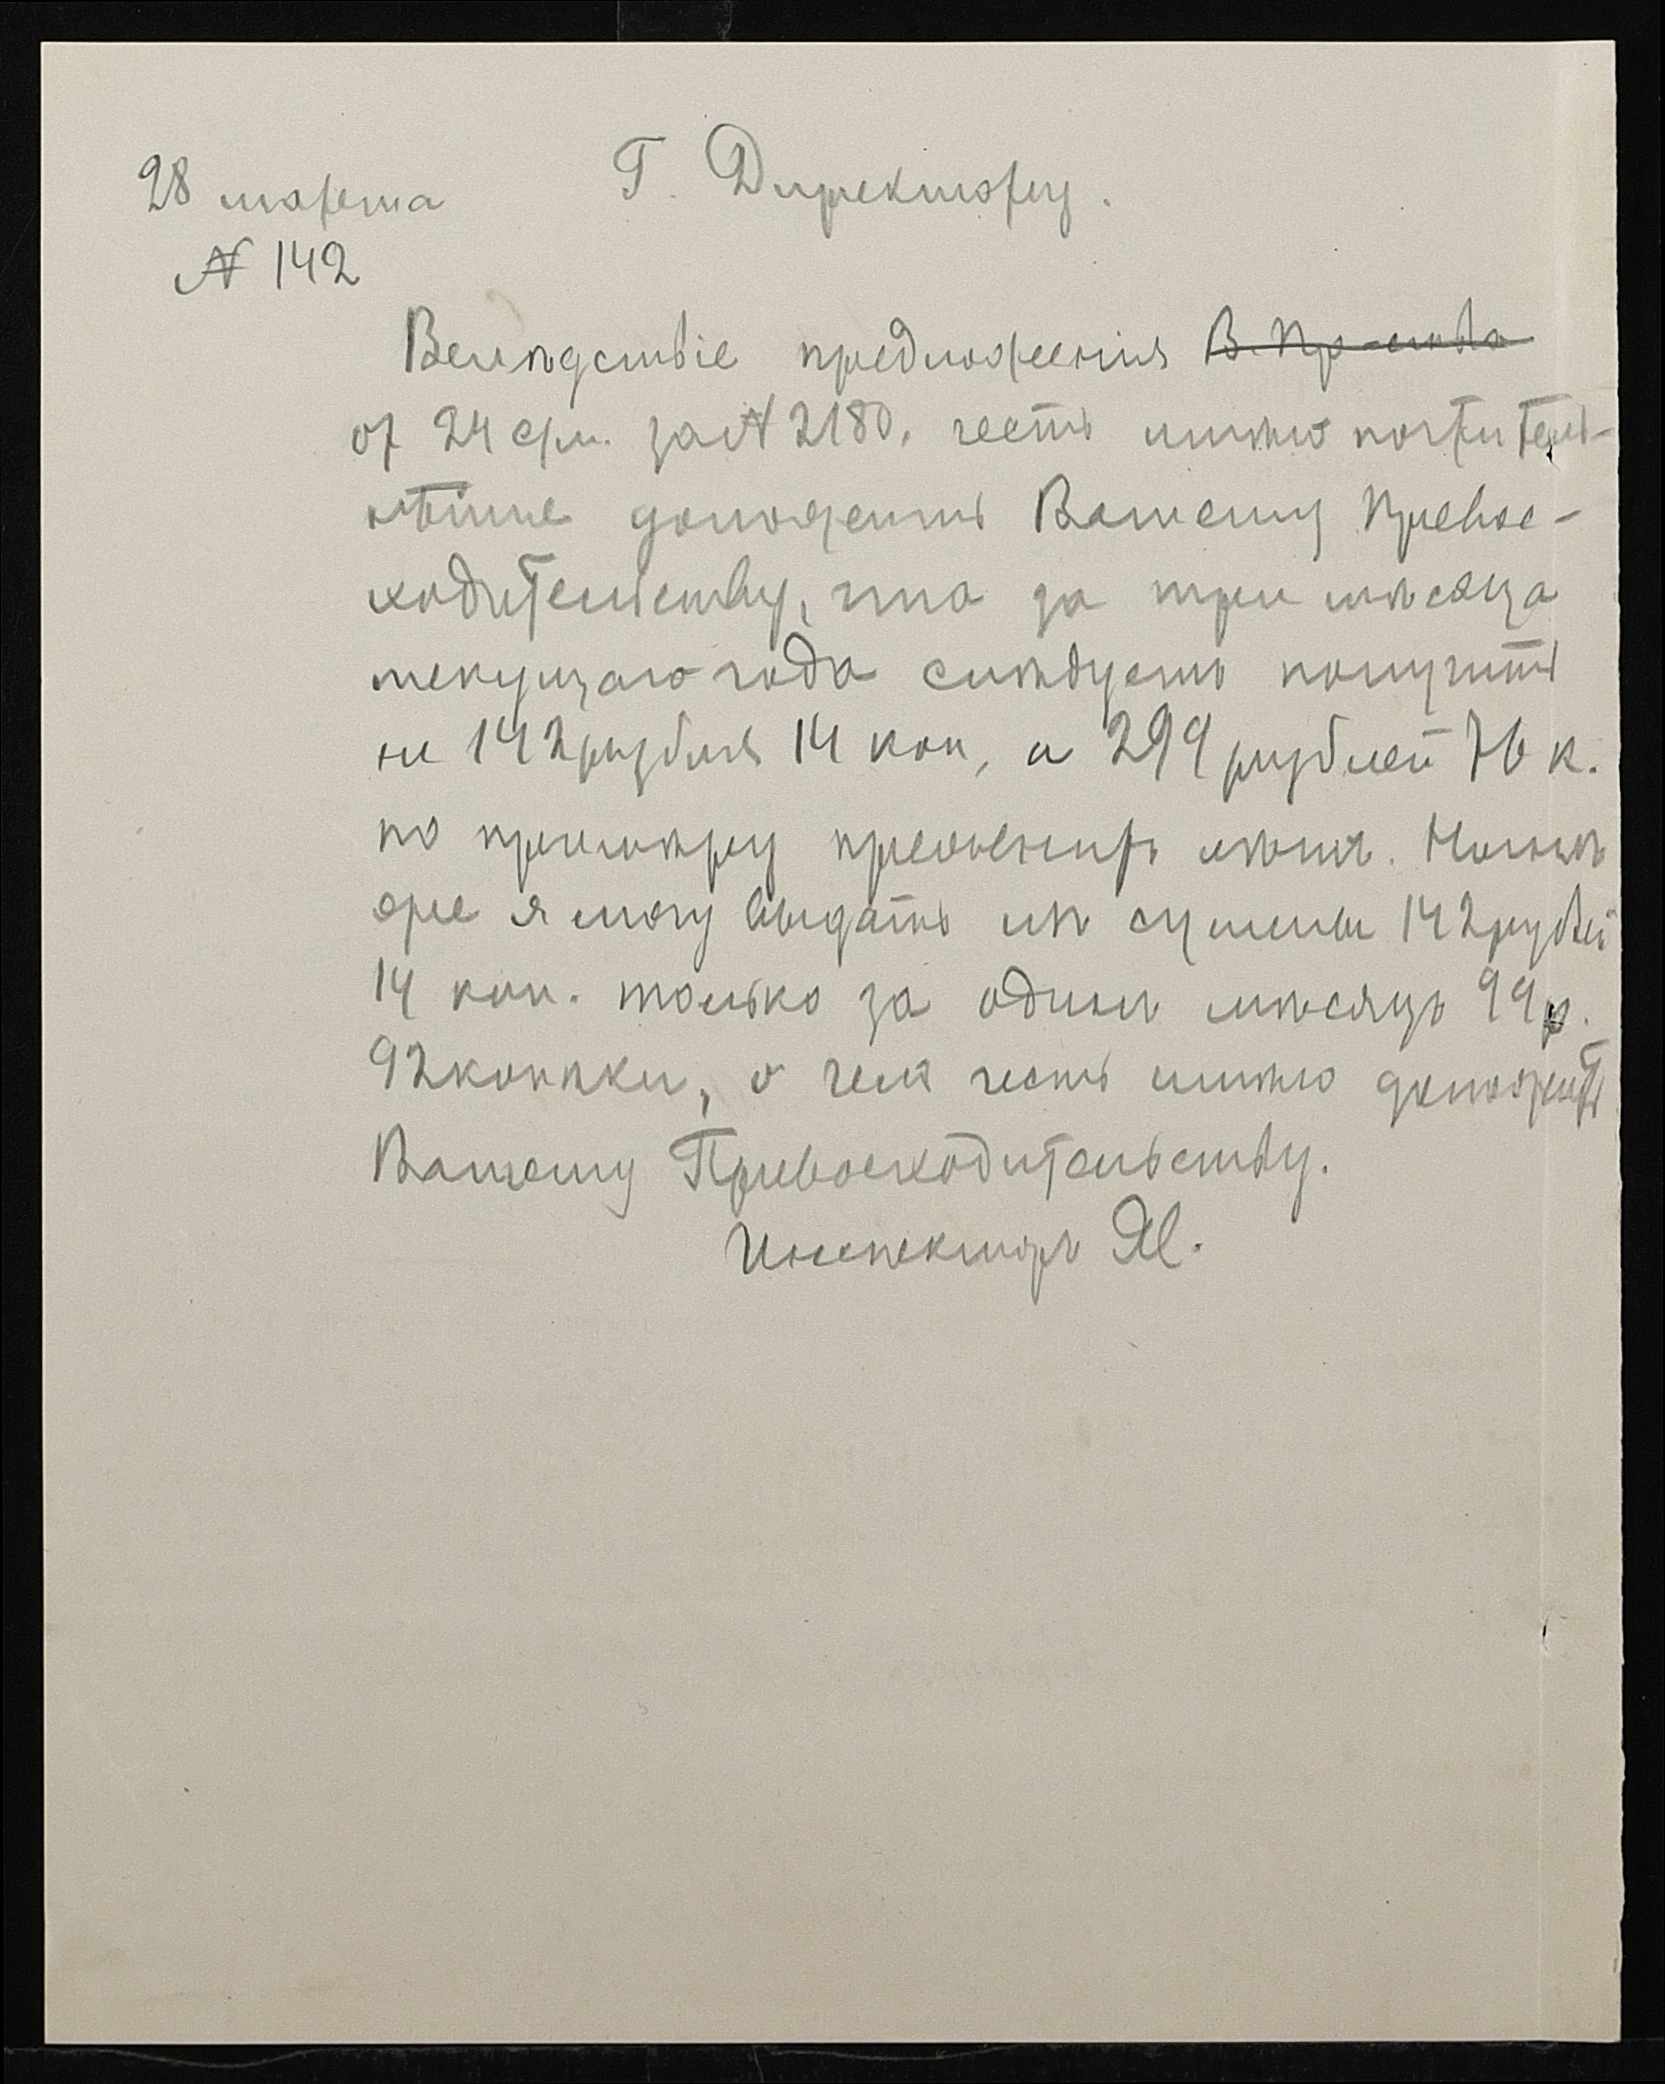 28 марта
Г. Директору.
№ 142
Вслѣдствіе предложенія В. Пр-ства
от 24 с/м. за № 2180, честь имѣю почтитель-
нѣйше доложить Вашему Превос-
ходительству, что за три мѣсяца
текущаго года слѣдуетъ получить
не 142 рубля 14 коп, а 299 рублей 76 к.
по примѣру прежнихъ лѣтъ. Нынѣ
же я могу выдать изъ суммы 142 рублей
14 коп. только за одинъ мѣсяцъ 99 р.
92 копѣки, о чемъ честь имѣю доложить
Вашему Превосходительству.
Инспекторъ Я.